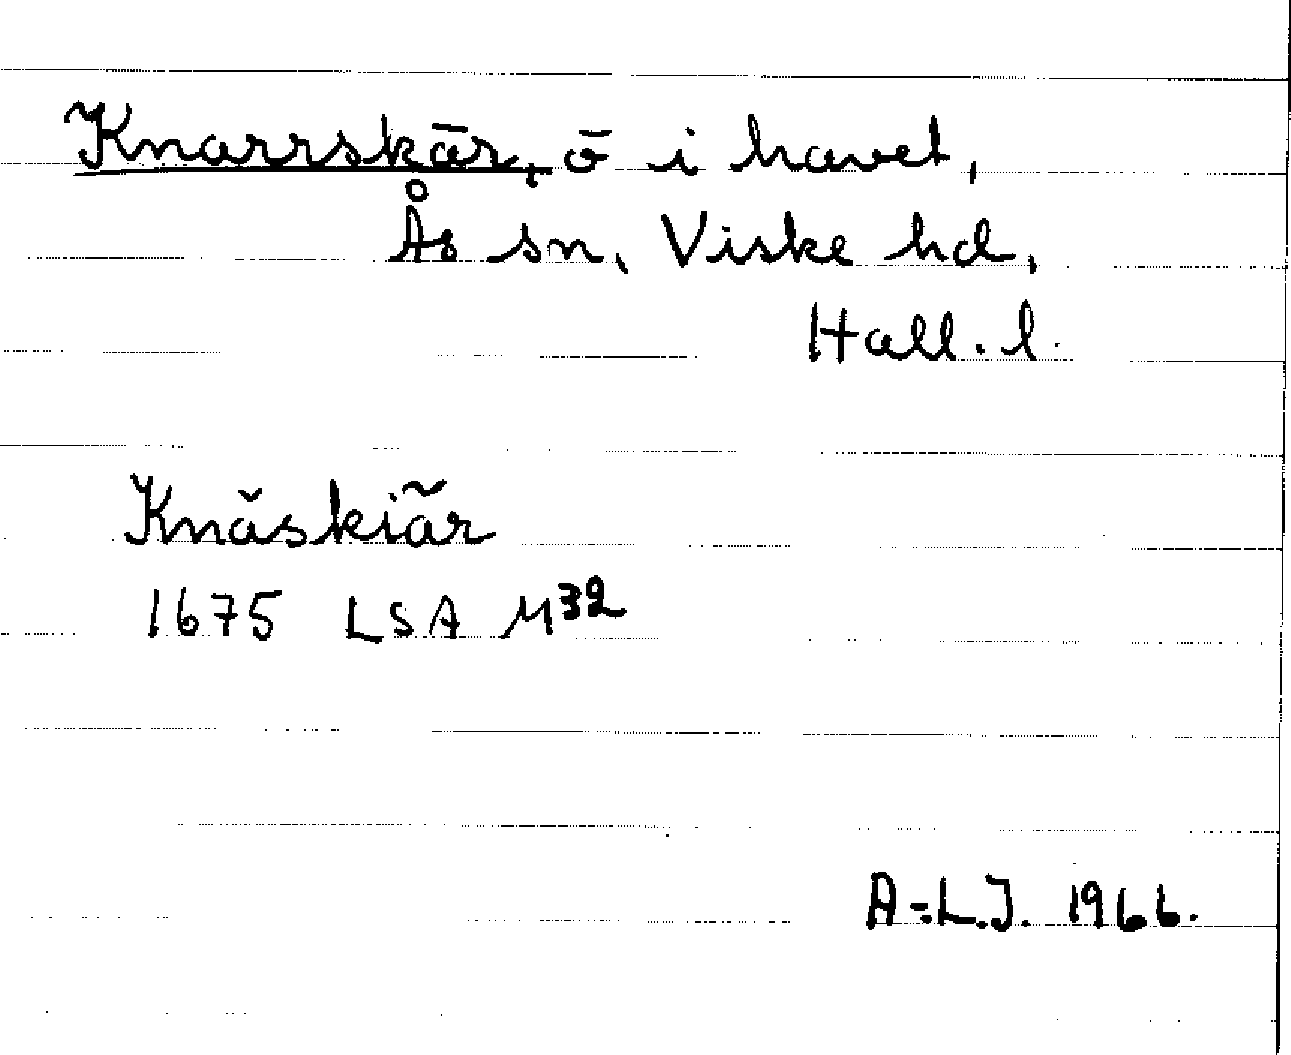 Knarrskär, ö i havet,
Ås sn, Viske hd,
Hall. l.
Knäskiär
1675 LSA M³²
A-L.J. 1966.